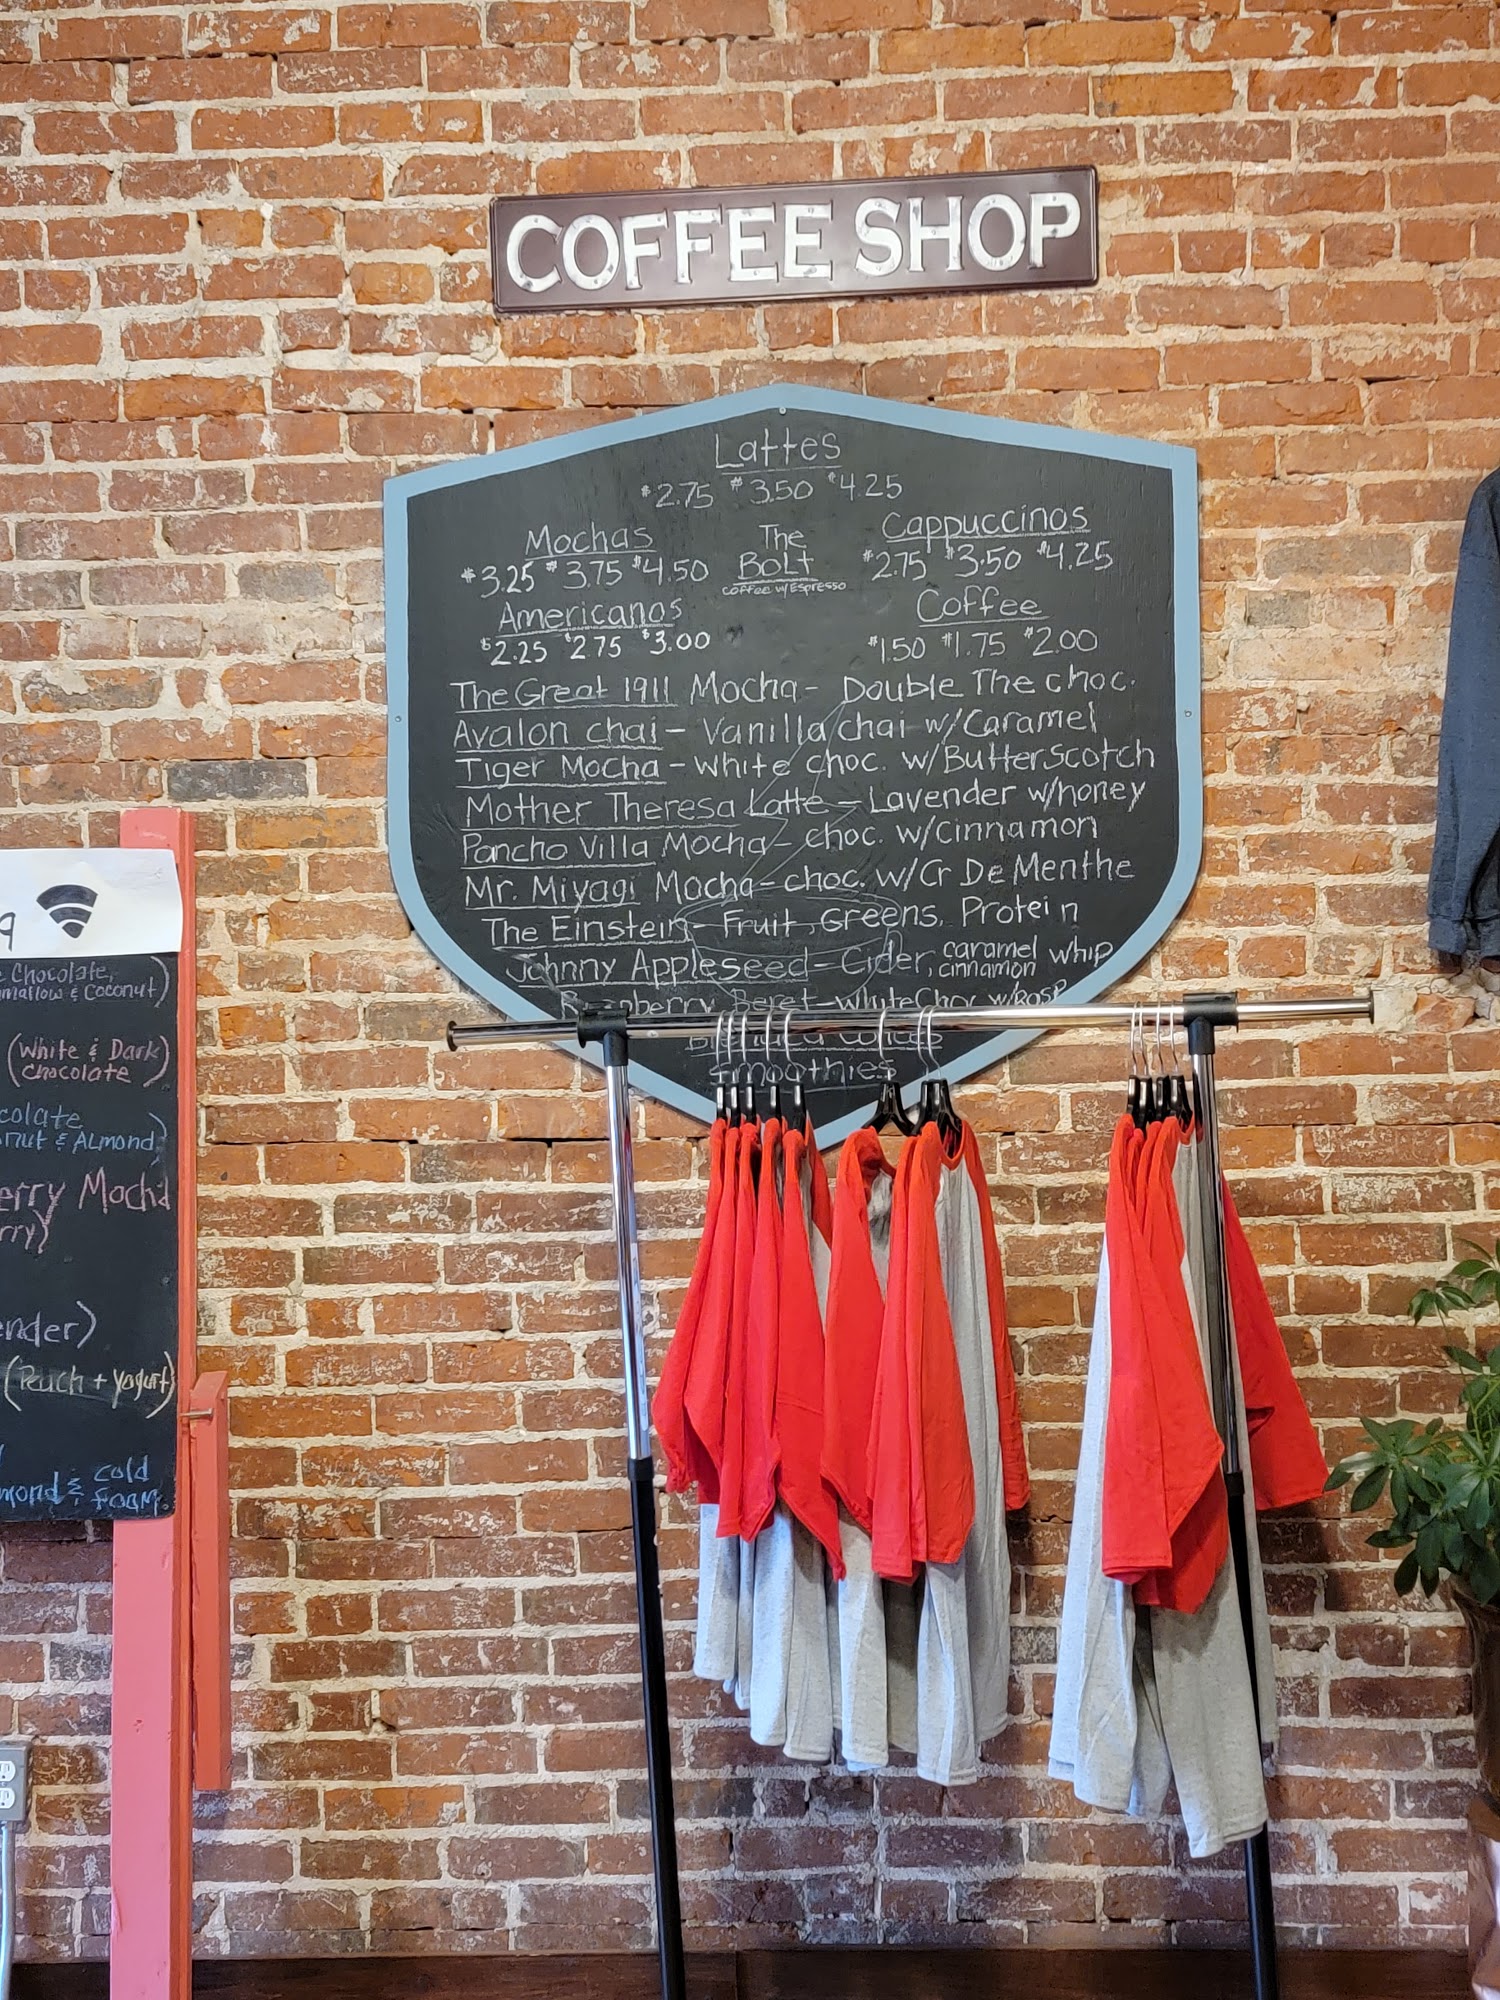 COFFEE SHOP
Lattes
$2.75 $3.50 $4.25
Mochas
$3.25 $3.75 $4.50
The
BOLT
coffee w/Espresso
Cappuccinos
$2.75 $3.50 $4.25
Americanos
$2.25 $2.75 $3.00
Coffee
$1.50 $1.75 $2.00
The Great 1911 Mocha- Double The choc.
Avalon chai- Vanilla chai w/Caramel
Tiger Mocha-white choc. w/Butterscotch
Mother Theresa Latte- Lavender w/honey
Pancho Villa Mocha- choc. w/cinnamon
Mr. Miyagi Mocha-choc. w/Cr De Menthe
The Einstein- Fruit, Greens, Protein
Johnny Appleseed-Cider, caramel cinnamon whip
Beret-white Choc w/
Smoothies
9
Chocolate,
& Coconut)
(White & Dark
chocolate)
& Almond)
Mocha
(Peach + Yogurt)
& cold
foam